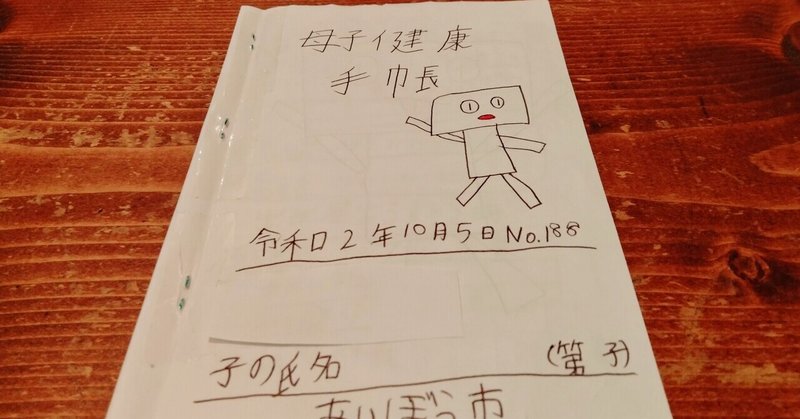 母子健康
手帳
令和2年10月5日No.188
子の氏名 (第 子)
市